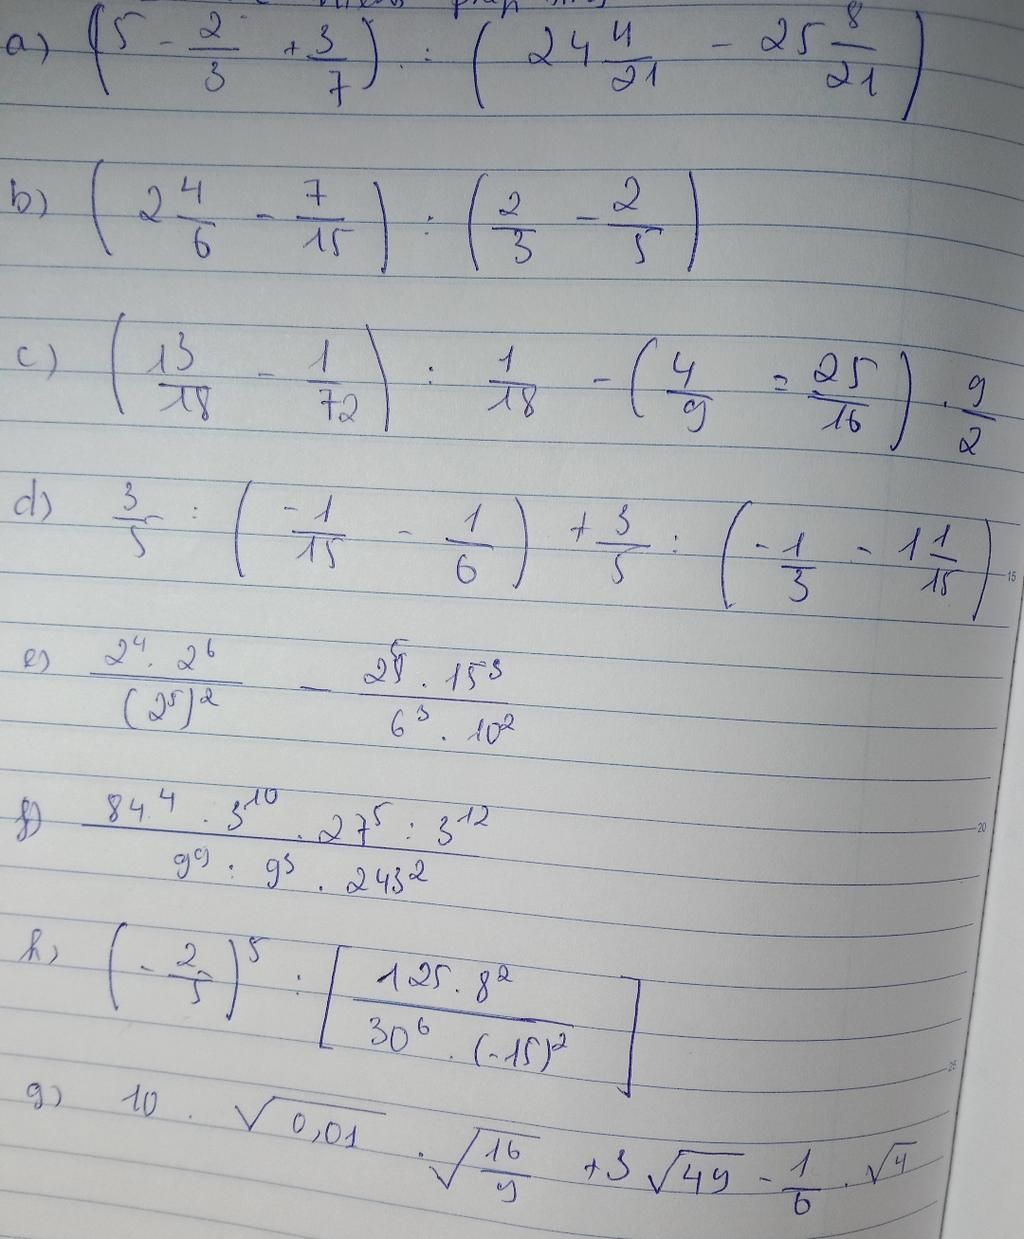 a) (5 - 2/3 + 3/7) : (24 4/21 - 25 8/21)
b) (2 4/6 - 7/15) : (2/3 - 2/5)
c) (13/18 - 1/72) : 1/18 - (4/9 = 25/16) · 9/2
d) 3/5 : (-1/15 - 1/6) + 3/5 : (-1/3 - 1 1/15)
15
e) 2⁴ · 2⁶ / (2⁵)² - 2⁵ · 15³ / 6³ · 10²
f) 84⁴ · 3¹⁰ · 27⁵ : 3¹² / 9⁹ : 9³ · 243²
20
h) (-2/5)⁵ : [125 · 8² / 30⁶ · (-15)²]
25
g) 10 · √0,01 · √16/9 + 3 √49 - 1/6 · √4